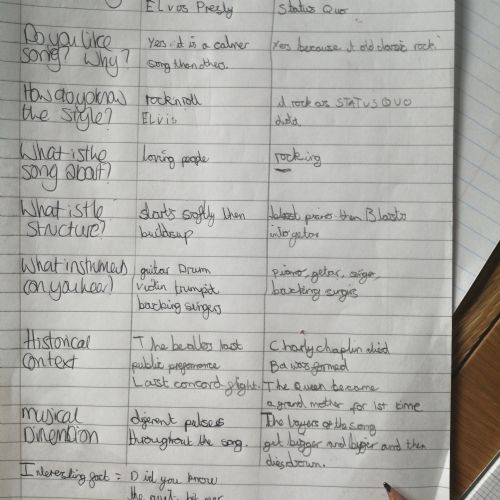 Elvos Presly Status Quo
Do you like Yes it is a calmer Yes because it old classic rock.
song? Why? song than others.
How do you know rocknroll I rock as STATUS QUO
the style? Elvis did
What is the loving people rocking
song about?
What is the starts softly then piano then Blasts
structure? buildsup into getar
What instruments guitar Drum piano, getar, singer,
can you hear? violin trumpit backing singers
backing singers
Historical The beatles last Charly chaplin died
Context public preformance Ba was formed
Last concord flight. The Queen became
a grand mother for 1st time
Musical diferent pulses The layers of the song
Dimension throughout the song. get bigger and bigger and then
dies down.
Interesting fact = Did you know
the